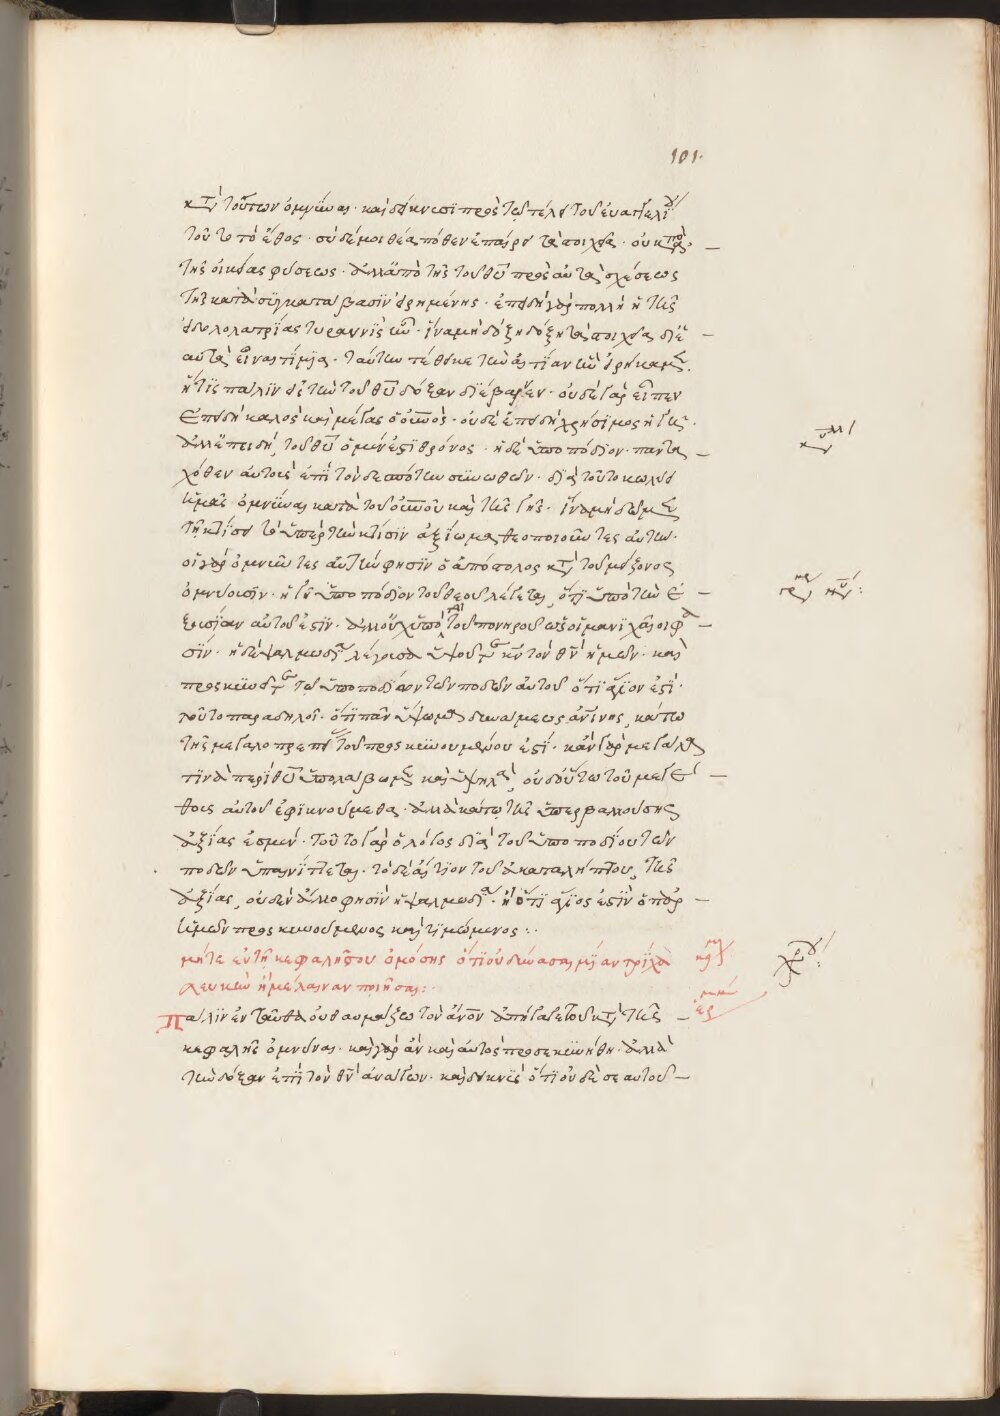 101.
κτ τούτων ὀμνύναι· καὶ δείκνυσι πρὸς τῷ τέλει τοῦ εὐαγγελίου
τοῦτο τὸ ἔθος· σὺ δέ μοι θέα πόθεν ἐπαίρει τὰ στοιχεῖα· οὐκ ἀπὸ
τῆς οἰκείας φύσεως· ἀλλ' ἀπὸ τῆς τοῦ θυ πρὸς αὐτὰ σχέσεως
τῆς κατὰ συγκατάβασιν εἰρημένης· ἐπειδὴ γὰρ πολλὴ ἡ τῆς
εἰδωλολατρίας τυραννὶς ἦν· ἵνα μὴ δόξη δόξη τὰ στοιχεῖα δι'
αὐτὰ εἶναι τίμια· ταύτην τέθεικε τὴν αἰτίαν ἣν εἰρήκαμεν·
ἥτις πάλιν εἰς τὴν τοῦ θυ δόξαν διέβαινεν· οὐδὲ γὰρ εἶπεν
ἐπειδὴ καλὸς καὶ μέγας ὁ οὐνος· οὐδὲ ἐπειδὴ χρήσιμος ἡ γῆ·
ἀλλ' ἐπειδὴ, τοῦ θυ ὁ μέν ἐστι θρόνος· ἡ δὲ ὑποπόδιον· παντα
χόθεν αὐτοὺς ἐπὶ τὸν δεσπότην συνωθῶν· διὰ τοῦτο κωλύει
ἡμᾶς ὀμνύναι κατὰ τοῦ οὐνοῦ καὶ τῆς γῆς· ἵνα μὴ δῶμεν
τῇ κτίσει τὸ ὑπὲρ τὴν κτίσιν ἀξίωμα θεοποιοῦντες αὐτήν·
οἱ γὰρ ὀμνύντες αὐτὴν φησὶν ὁ ἀπόστολος κτ τοῦ μείζονος
ὀμνύουσιν· ἡ γῆ ὑποπόδιον τοῦ θεοῦ λέγεται, ὅτι ὑπὸ τὴν ἐ
ξουσίαν αὐτοῦ ἐστιν· ἀλλ' οὐχ ὑπὸ τὴν τοῦ πονηροῦ ὡς οἱ μανιχαῖοι φα
σίν· ἡ δὲ ψαλμωδία λέγουσα ὑψοῦτε κν τὸν θν ἡμῶν· καὶ
προσκυνεῖτε τῷ ὑποποδίῳ τῶν ποδῶν αὐτοῦ ὅτι ἅγιόν ἐστι·
τοῦτο παραδηλοῖ· ὅτι πᾶν ὕψωμα δυνάμεως ἀνίνης, κάτω
τῆς μεγαλοπρεπείας τοῦ προσκυνουμένου ἐστί· κἂν γὰρ μεγάλα
τινὰ περὶ θυ ὑπολάβωμεν καὶ ὑψηλὰ, οὐδ' οὕτω τοῦ μεγέ
θους αὐτοῦ ἐφικνούμεθα· ἀλλὰ κάτω τῆς ὑπερβαλλούσης
ἀξίας ἐσμέν· τοῦτο γὰρ ὁ λόγος διὰ τοῦ ὑποποδίου τῶν
ποδῶν ὑπαινίττεται· τὸ δὲ αἴτιον τοῦ ἀκαταλήπτου, τῆς
ἀξίας, οὐδὲν ἄλλο φησὶν ἡ ψαλμωδία· ἢ ὅτι ἅγιός ἐστιν ὁ παρ'
ἡμῶν προσκυνούμενος καὶ τιμώμενος :·
μήτε ἐν τῇ κεφαλῇ σου ὀμόσης ὅτι οὐ δύνασαι μίαν τρίχα
λευκὴν ἢ μέλαιναν ποιῆσαι :·
Πάλιν ἐνταῦθα οὐ θαυμάζων τὸν ἄνον ἀπήγαγε τοῦ κτ τῆς
κεφαλῆς ὀμνύναι· καὶ γὰρ ἂν καὶ αὐτὸς προσεκυνήθη· ἀλλὰ
τὴν δόξαν ἐπὶ τὸν θν ἀνάγων· καὶ δεικνὺς ὅτι οὐδὲ σεαυτοῦ